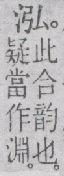 泓。
此合韵也。
疑當作淵。